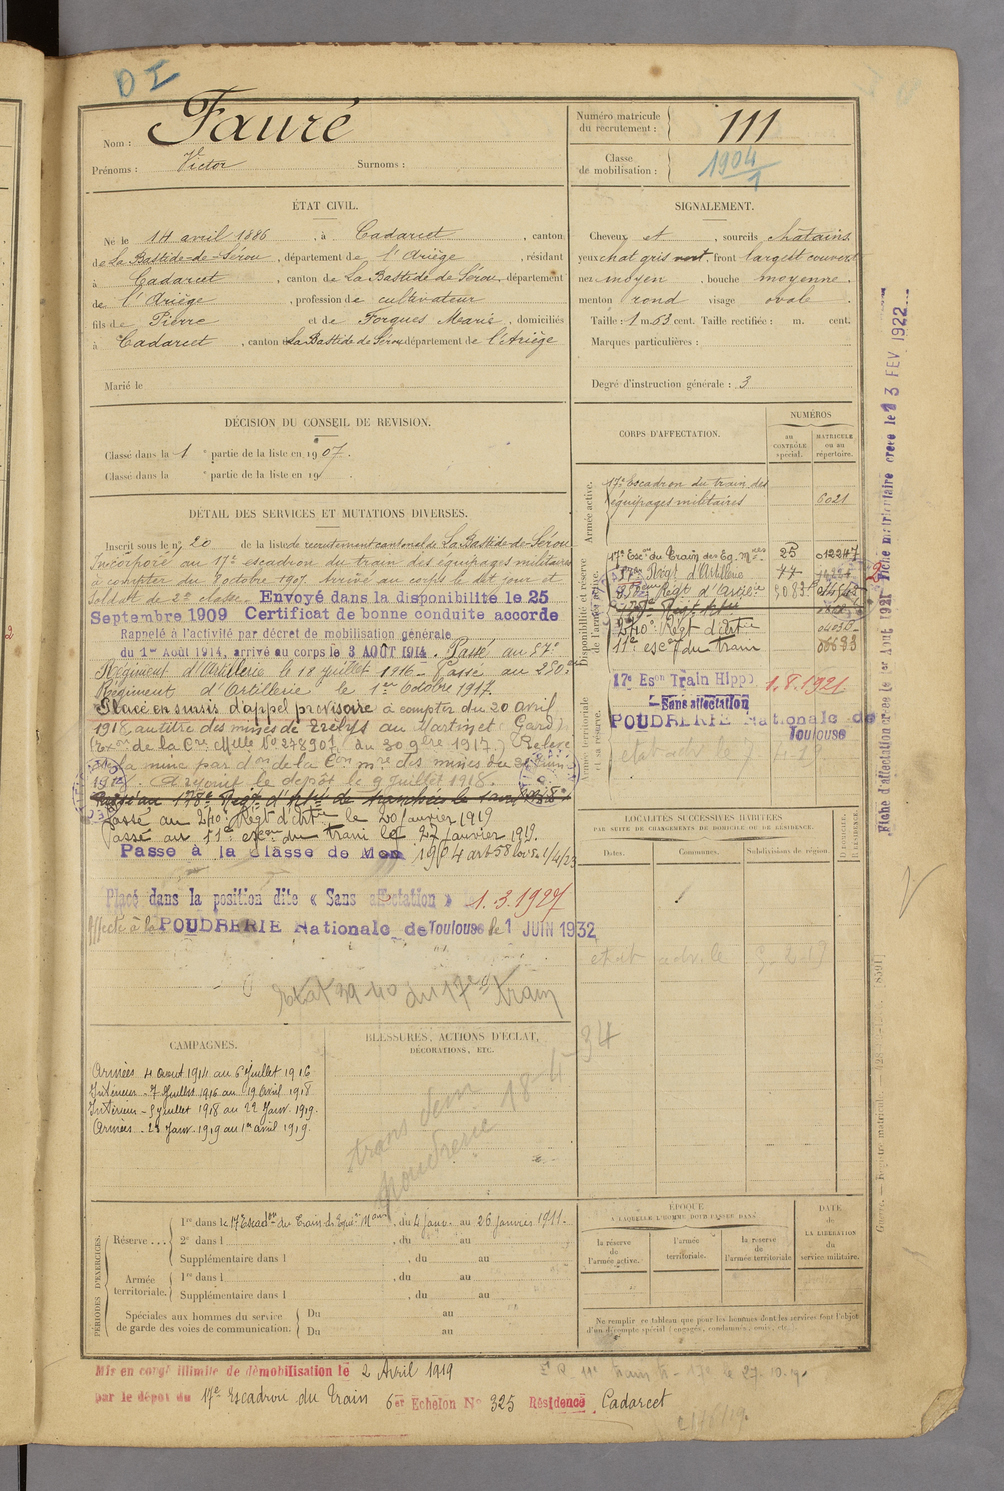 DI
Nom : Fauré
Prénoms : Victor Surnoms :
Numéro matricule du recrutement : 111
Classe de mobilisation : 1904/1
ÉTAT CIVIL.
Né le 14 avril 1886, à Cadarcet, canton
de La Bastide-de-Sérou, département de l'Ariège, résidant
à Cadarcet, canton de La Bastide de Sérou, département
de l'Ariège, profession de cultivateur
fils de Pierre et de Forgues Marie, domiciliés
à Cadarcet, canton de La Bastide de Sérou département de l'Ariège
Marié le
SIGNALEMENT.
Cheveux et, sourcils chatains
yeux chat gris vert, front largest couvert
nez moyen, bouche moyenne.
menton rond visage ovale.
Taille : 1 m. 63 cent. Taille rectifiée : m. cent.
Marques particulières :
Degré d'instruction générale : 3
DÉCISION DU CONSEIL DE REVISION.
Classé dans la 1e partie de la liste en 1907.
Classé dans la e partie de la liste en 19
DÉTAIL DES SERVICES ET MUTATIONS DIVERSES.
Inscrit sous le n° 20 de la liste de recrutement cantonal de La Bastide-de-Sérou
Incorporé au 17e escadron du train des équipages militaires
à compter du 7 octobre 1907. Arrivé au corps le dit jour et
soldat de 2e classe. Envoyé dans la disponibilité le 25
Septembre 1909 Certificat de bonne conduite accorde
Rappelé à l'activité par décret de mobilisation générale
du 1er Août 1914, arrivé au corps le 3 AOUT 1914. Passé au 57e
Régiment d'Artillerie le 18 juillet 1916. Passé au 250e
Régiment d'Artillerie le 1er Octobre 1917.
Placé en sursis d'appel provisoire à compter du 20 avril
1918 au titre des mines de Trélys au Martinet (Gard)
de la du 30 9bre 1917.) Relevé
la mine par des mines du juin
1918. A rejoint le dépôt le 9 juillet 1918.
Passé au 178e Régt d'Artie de tranchées le
Passé au 240e Régt d'Artie le 20 janvier 1919
Passé au 11e escon du train le 27 janvier 1919.
Passe à la classe de Mon 1904 art 58 loi du 1/4/23
Placé dans la position dite « Sans affectation » 1.3.1927
Affecté à la POUDRERIE Nationale de Toulouse le 1 JUIN 1932
Etat 39-40 du 17e d train
CORPS D'AFFECTATION.
NUMÉROS
au CONTRÔLE spécial.
MATRICULE ou au répertoire.
Armée active.
17e Escadron du train des
équipages militaires 6021
Disponibilité et réserve de l'armée active.
17e Escon du Train des Eq. Mres 25 01224
57e Régt d'Artillerie 77
250e Régt d'Artie
240e Régt d'Artie
11e escon du train 08693
Armée territoriale et sa réserve.
17e Eson Train Hippo 1.8.1921
Sans affectation
POUDRERIE Nationale de
Toulouse
LOCALITÉS SUCCESSIVES HABITÉES
PAR SUITE DE CHANGEMENTS DE DOMICILE OU DE RÉSIDENCE.
Dates. Communes. Subdivisions de région. D. DOMICILE. R. RÉSIDENCE.
CAMPAGNES.
Armées 4 août 1914 au 6 juillet 1916
Intérieur - 7 juillet 1916 au 19 avril 1918
Intérieur - 9 juillet 1918 au 22 Janv. 1919.
Armées - 23 Janv. 1919 au 1er avril 1919.
BLESSURES, ACTIONS D'ÉCLAT,
DÉCORATIONS, ETC.
trans dem
poudrerie 18-4-34
PÉRIODES D'EXERCICES.
Réserve... 1re dans le 17 Escadon du Train des Equi. Mres, du 4 janv. au 26 janvier 1911.
2e dans l , du au
Supplémentaire dans l , du au
Armée territoriale. 1re dans l , du au
Supplémentaire dans l , du au
Spéciales aux hommes du service de garde des voies de communication. Du au
Du au
ÉPOQUE
À LAQUELLE L'HOMME DOIT PASSER DANS
la réserve de l'armée active.
l'armée territoriale.
la réserve de l'armée territoriale
DATE DE LA LIBÉRATION du service militaire.
Ne remplir ce tableau que pour les hommes dont les services font l'objet
d'un décompte spécial (engagés, condamnés, omis, etc.)
Mis en congé illimité de démobilisation le 2 Avril 1919
par le dépôt du 17e Escadron du Train 6er Echelon N° 325 Résidence Cadarcet
Fiche d'affectation créée le 1er Aout 1921 Fiche matriculaire créée le 13 FEV 1922